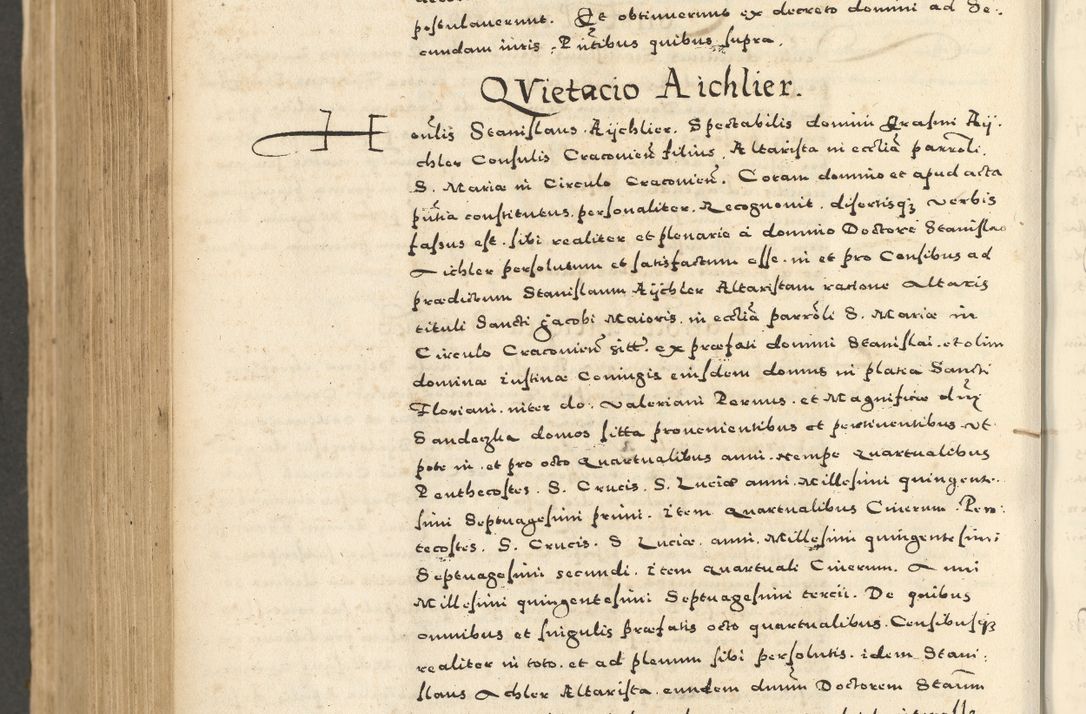 postulauerunt. Et obtinuerunt ex decreto domini ad Se-
cundam iuris. Pñtibus quibus supra.
QVietacio Aichlier.
H
onũlis Stanislaus Aÿchlier. Spectabilis domini Erasmi Aÿ-
chler Consulis Cracouień filius, Altarista in ecctiã parroli.
S. Mariæ in Circulo Cracouień. Coram domino et apud acta
pñtia constitutus personaliter. Recognouit. disertisq₃ verbis
fassus est. sibi realiter et plenarie a domino Doctore Stanislao
Aichler persolutum et satisfactum esse. in et pro Censibus ad
prædictum Stanislaum Aÿchler Altaristam ratione altaris
tituli Sancti Jacobi Maioris. in ecctiã parroli S. Mariæ in
Circulo Cracouień sitt. ex præfati domini Stanislai. et olim
dominæ Iustinæ Coniugis eiusdem domus in platea Sancti
Floriani. inter do. Valeriani Pernus. et Magnificæ dnj
Sandeczka domos sitta prouenientibus et pertinentibus vt
pote in. et pro octo quartualibus anni. Nempe quartualibus
Penthecostes. S. Crucis. S. Luciæ anni. Millesimi quingente-
simi Septuagesimi primi. Item quartualibus Cinerum. Pen-
tecostes. S. Crucis. S Luciæ. anni. Millesimi quingentesimi
Septuagesimi secundi. Item quartuali Cinerum. Anni
Millesimi quingentesimi Septuagesimi tercii. De quibus
omnibus et singulis præfatis octo quartualibus. Censibusq₃
realiter in toto. et ad plenum sibi persolutis. idem Stani-
slaus Achler Altarista. eundem dnum Doctorem Stanm